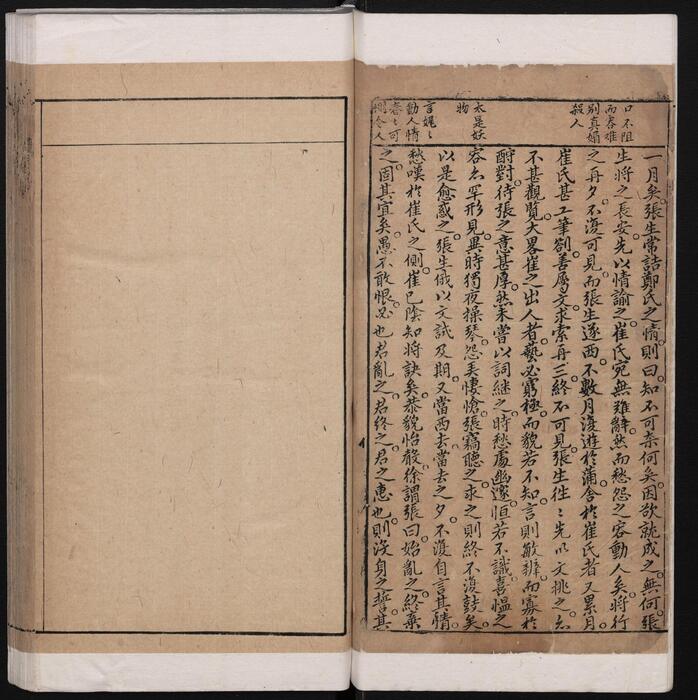 口不阻
而容难
别真媚
殺人
太是妖
物
言娓〻
動人情
〻可
令人
一月矣張生常詰鄭氏之情則曰知不可柰何矣因欲就成之無何張
生將之長安先以情諭之崔氏宛無難辭然而愁怨之容動人矣將行
之再夕不復可見而張生遂西不數月復遊於蒲舍於崔氏者又累月
崔氏甚工筆劄善屬文求索再三終不可見張生往〻先以文挑之亦
不甚觀覽大畧崔之出人者藝必窮極而貌若不知言則敏辨而寡於
酧對待張之意甚厚然未嘗以詞継之時愁處幽邃恒若不識喜愠之
容亦罕形見異時獨夜操琴怨弄悽愴張竊聽之求之則終不復鼓矣
以是愈惑之張生俄以文試及期又當西去當去之夕不復自言其情
愁嘆於崔氏之側崔已陰知將訣矣恭貌怡聲徐謂張曰始亂之終棄
之固其宜矣愚不敢恨必也君亂之君終之君之惠也則沒身之誓其